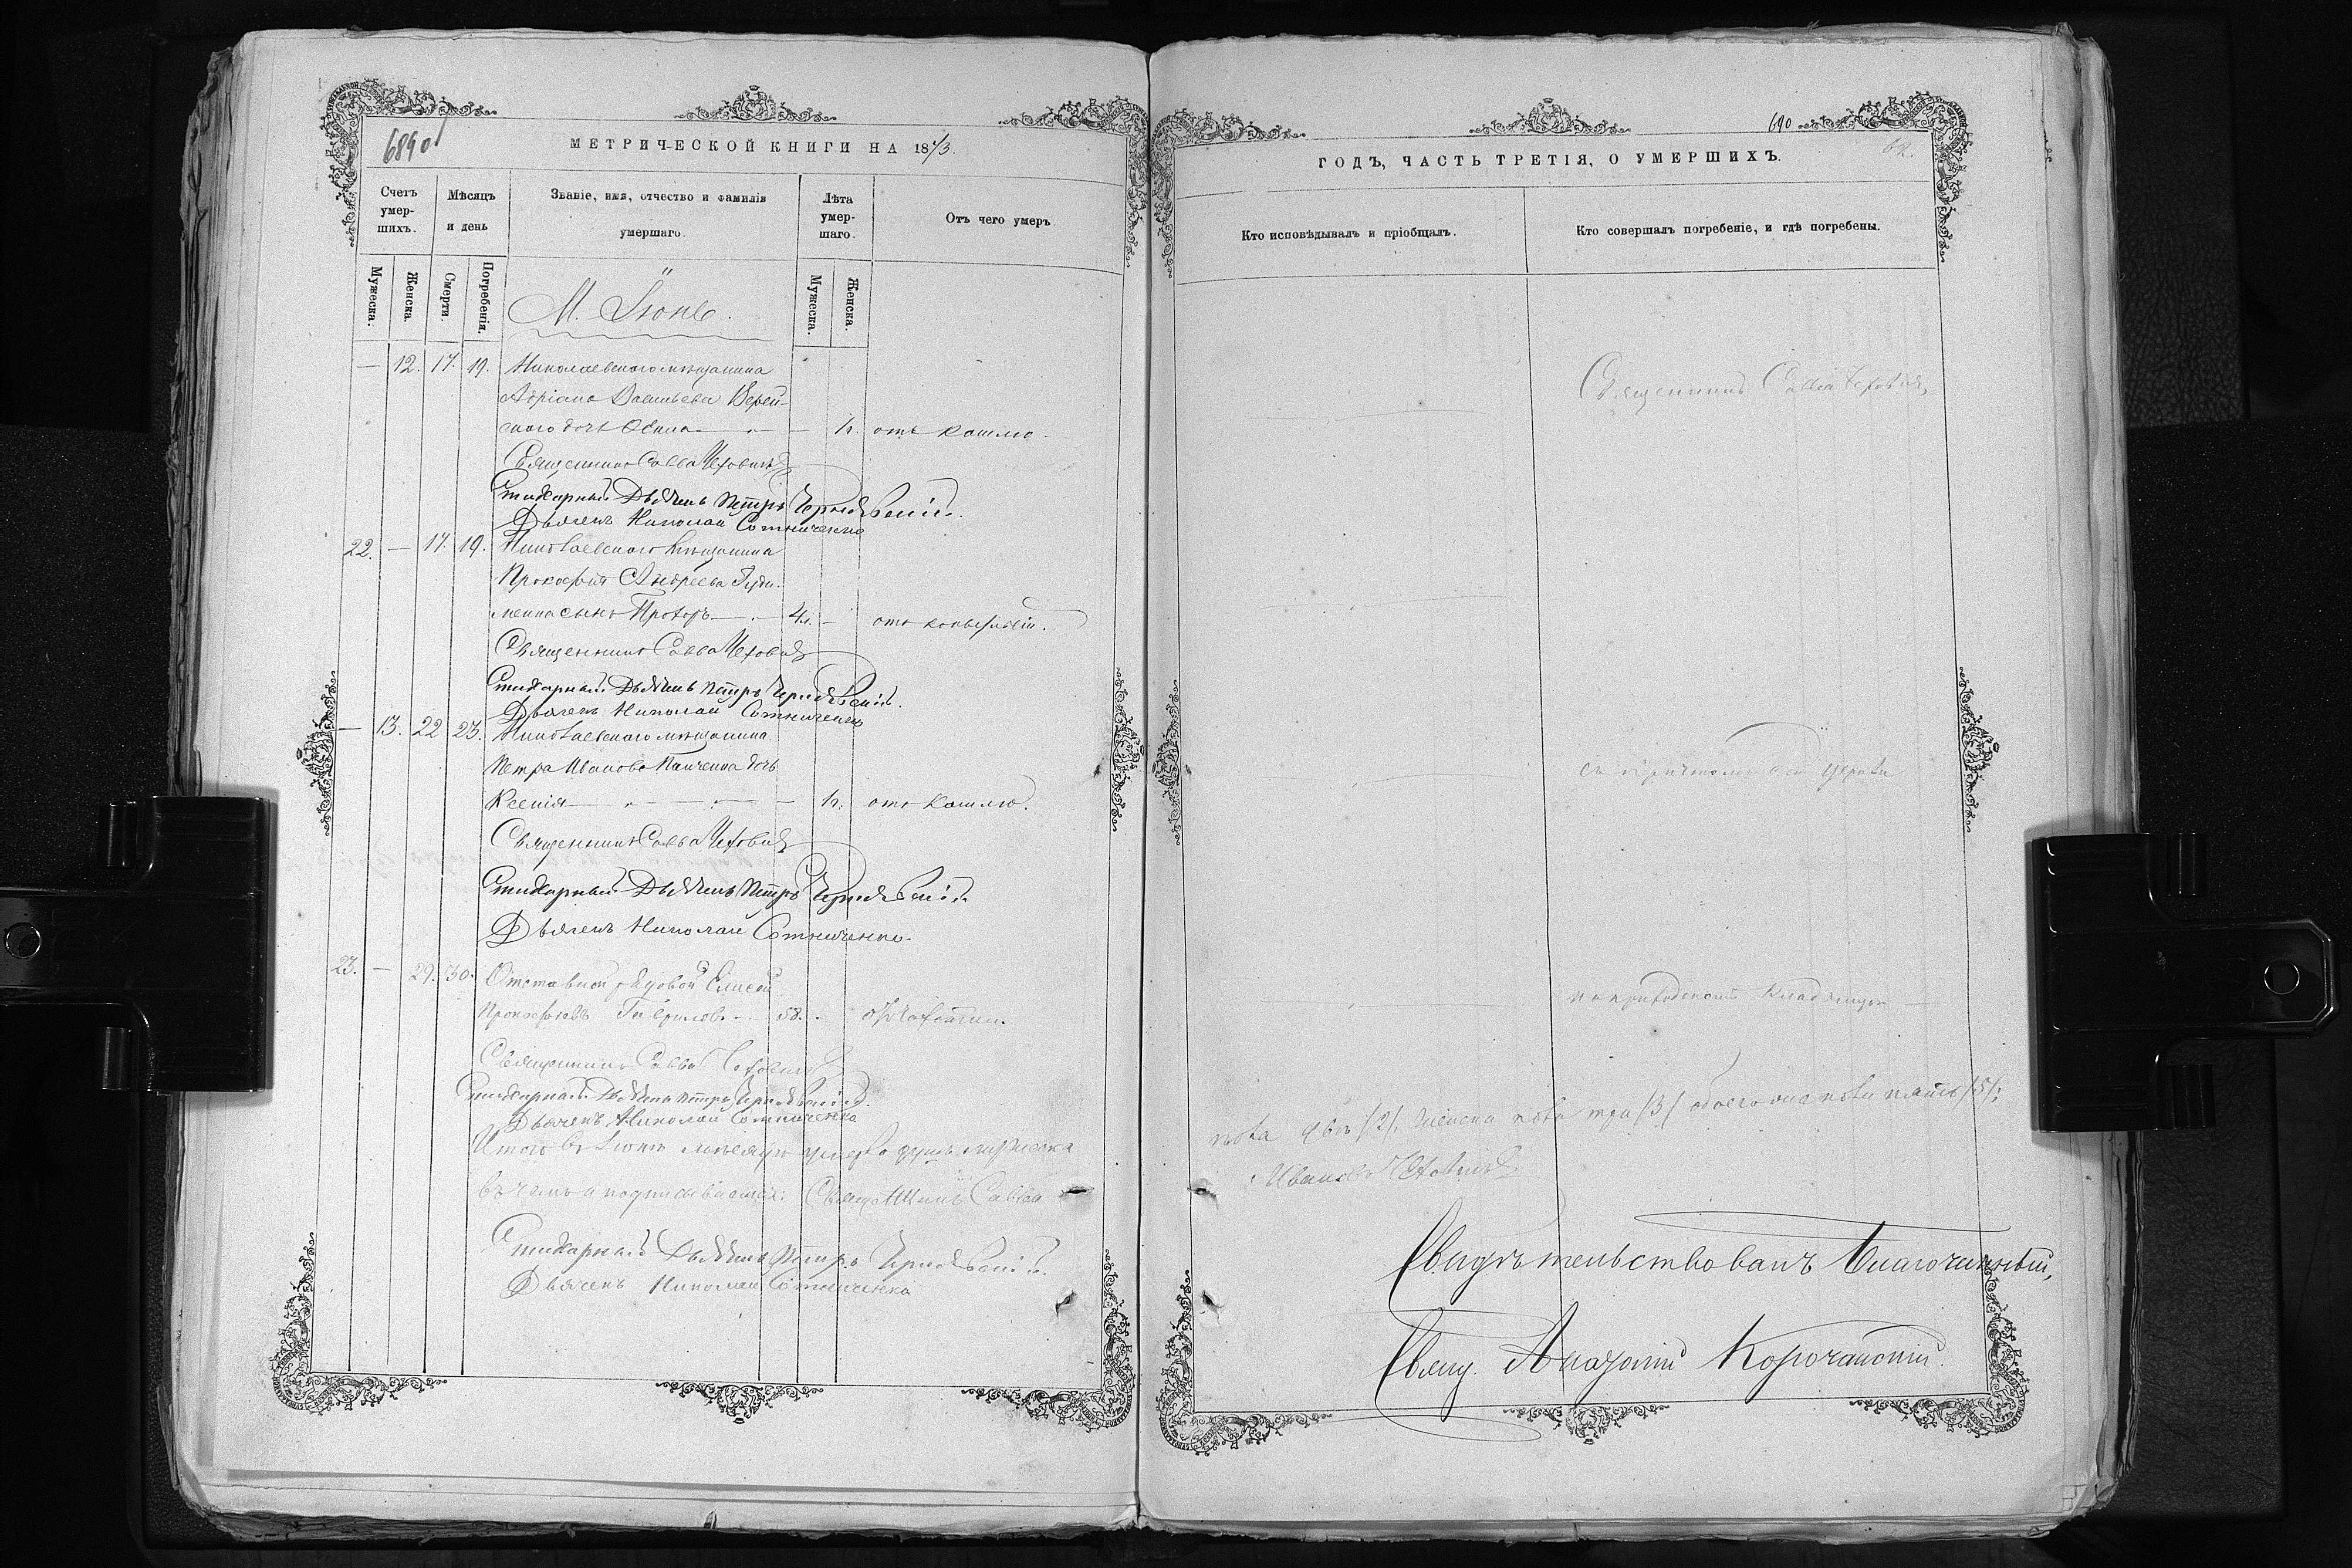 689 об
МЕТРИЧЕСКОЙ КНИГИ НА 1873
Счетъ умер-шихъ.
Мѣсяцъ и день
Званіе, имя, отчество и фамилія умершаго.
Лѣта умер-шаго.
Отъ чего умеръ.
Мужеска.
Женска.
Смерти.
Погребенія.
М. Іюнь.
Мужеска.
Женска.
— 12. 17. 19. Николаевского мѣщанина
Адріана Васильева Верей-
ского дочь — — 1 г. отъ кашлю.
Священникъ Савва Чеховичъ
Стихарный Дьячекъ Петръ Чернявскій.
Дьячекъ Николай Сотниченко
22. — 17. 19. Николаевского мѣщанина
Прокофія Андреева
сынъ Прохоръ — 4 л. —
Священникъ Савва Чеховичъ
Стихарный Дьячекъ Петръ Чернявскій.
Дьячекъ Николай Сотниченко
— 13. 22 23. Николаевского мѣщанина
Петра Иванова Панченка дочь
Ксенія — — — 1 г. отъ кашлю.
Священникъ Савва Чеховичъ
Стихарный Дьячекъ Петръ Чернявскій.
Дьячекъ Николай Сотниченко.
23. — 29. 30. Отставной рядовой Елисей
Прокофьевъ Гаврилов. — 58. —
Священникъ Савва Чеховичъ
Стихарный Дьячекъ Петръ Чернявскій.
Дьячекъ Николай Сотниченко
Итого въ Іюнѣ мѣсяцѣ умерло душъ мужеска
въ чемъ и подписываемся: Священникъ Савва
Стихарный Дьячекъ Петръ Чернявскій.
Дьячекъ Николай Сотниченко
690
62.
ГОДЪ, ЧАСТЬ ТРЕТІЯ, О УМЕРШИХЪ.
Кто исповѣдывалъ и пріобщалъ.
Кто совершалъ погребеніе, и гдѣ погребены.
Священникъ Савва Чеховичъ,
съ причтомъ сей Церкви
на приходскомъ Кладбищѣ
пола два /2/. женска пола три /3/ обоего пола пять /5/:
Ивановъ Чеховичъ
Свидѣтельствовалъ Благочинный,
Свящ. Аркадій Корочанскій.